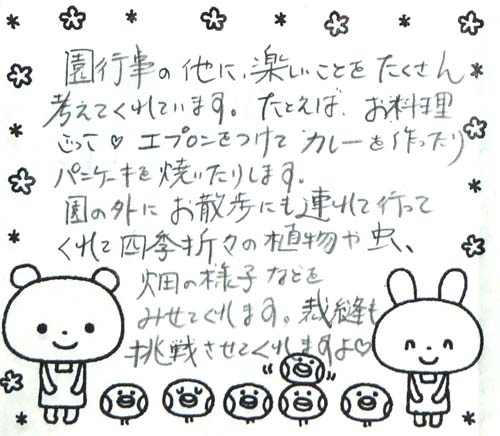 園行事の他に、楽しいことをたくさん
考えてくれています。たとえば、お料理
ごっこ♡ エプロンをつけて カレーを作ったり
パンケーキを焼いたりします。
園の外に お散歩にも連れて行って
くれて 四季折々の植物や虫、
畑の様子などを
みせてくれます。裁縫も
挑戦させてくれますよ♡